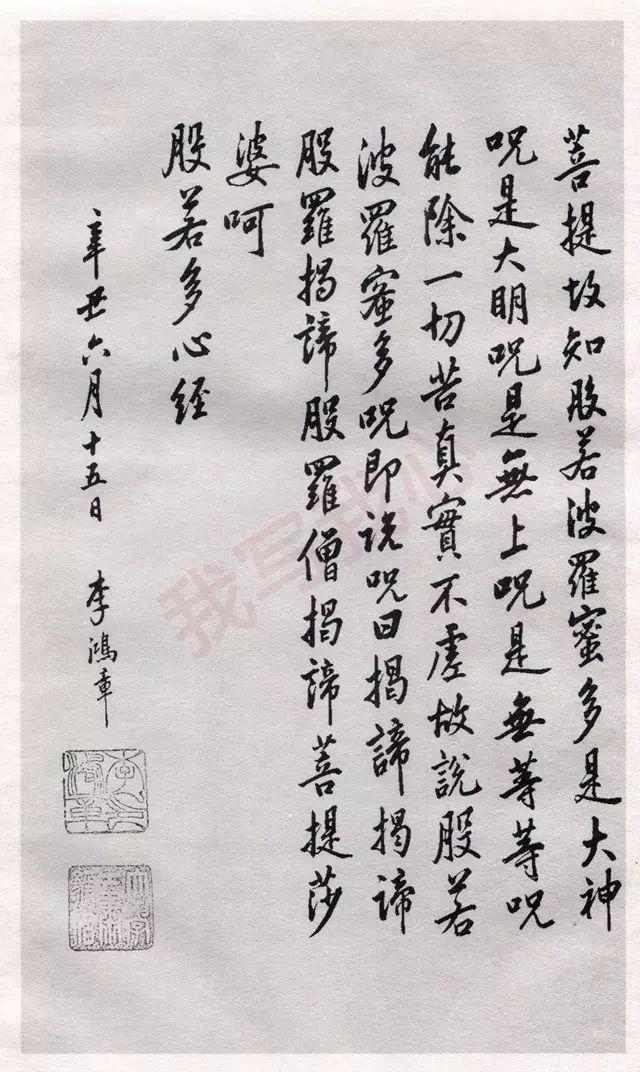 菩提故知股若波羅蜜多是大神
呪是大明呪是無上呪是無等等呪
能除一切苦真實不虛故說股若
波羅蜜多呪即說呪曰揭諦揭諦
股羅揭諦股羅僧揭諦菩提莎
婆呵
股若多心経
辛丑六月十五日 李鴻章
我写我心